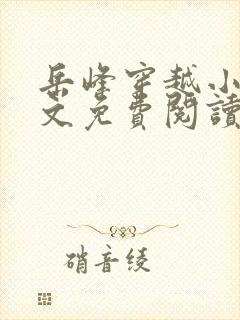 岳峰穿越小
文免費閱讀
硝音绫